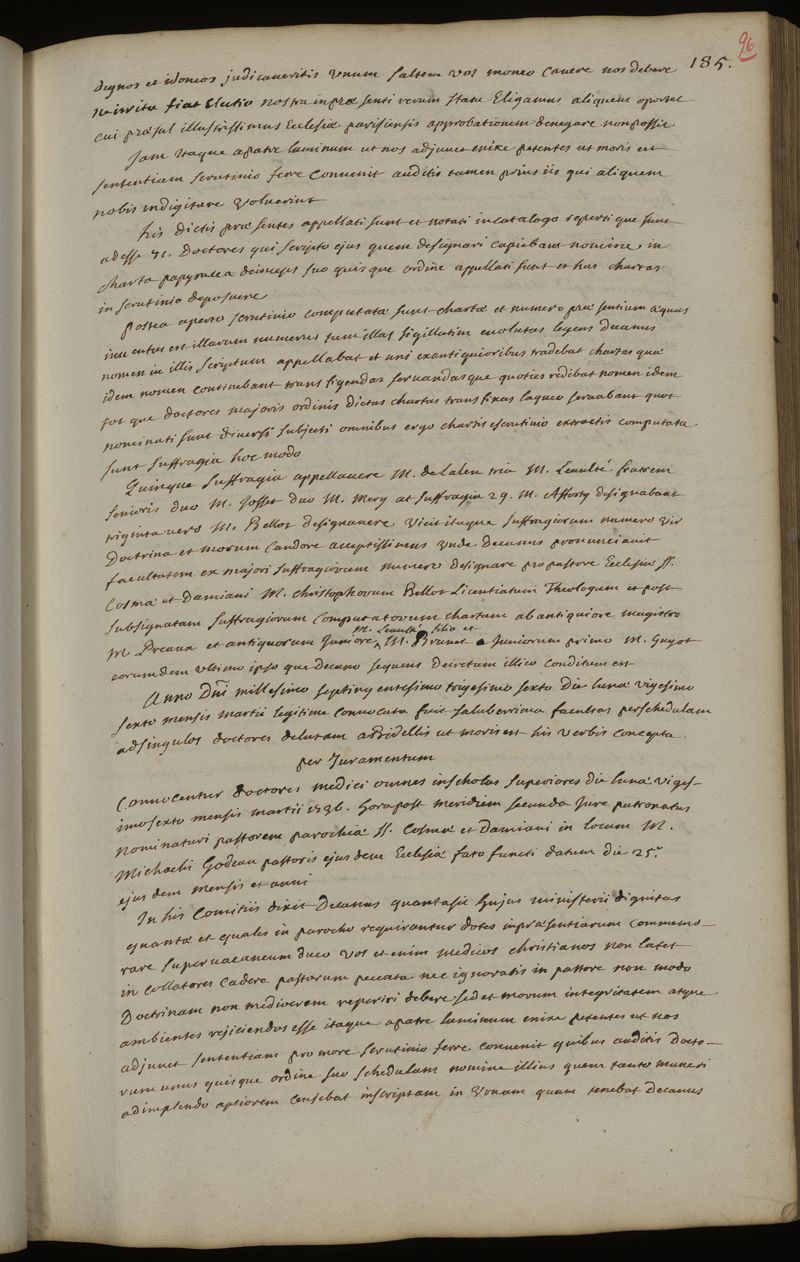 96
185.
dignos et idoneos judicaveritis unum saltem vos moneo cavere nos debere
ne irrita fiat Electio nostra in præsenti rerum statu Eligamus aliquem oportet
cui præsul illustrissimus Ecclesiæ parisiensis approbationem denegare non possit.
Jam itaque a patre luminum ut nos adjuvet enixe petentes ut moris est
sententiam scrutinio ferre convenit auditis tamen prius iis qui aliquem
nobis indigitare voluerint
his dictis præsentes appellati sunt et notati in catalogo reperti que sunt
adesse 71. Doctores qui scripto ejus quem designari cupiebant nomine in
charta papyracea deinceps suo quisque ordine appellati sunt et has chartas
in scrutinio deposuere
postea aperto scrutinio computatæ sunt chartæ et numero præsentium æquus
inventus est illarum numerus tum illas sigillatim evolutas legens decanus
nomen in illis scriptum appellabat et uni ex antiquioribus tradebat chartas quæ
idem nomen continebant transfigendas servandasque quoties redibat nomen idem
tot que doctores majoris ordinis dictas chartas transfixas laqueo servabant quot
nominati sunt diversi subjecti omnibus ergo chartis e scrutinio extractis computata
sunt suffragia hoc modo
Quinque suffragia appellavere M. delaleu tria M. Leaulté fratrem
senioris duo M. Josset duo M. Mery at suffragia 29. M. Afforty designabant
triginta vero M. Bellot designavere vicit itaque suffragiorum numero vir
Doctrina et morum candore acceptissimus unde Decanus pronunciavit
facultatem ex majori suffragiorum numero designare pro pastore Ecclesiæ SS.
Cosmæ et Damiani M. christophorum Bellot Licentiatum Theologum et post
subsignatam suffragiorum computatorum chartam ab antiquiore magistro
M. Leaulté filio et
M Preaux et antiquorum juniore M. Brunet juniorum primo M. Guyot
eorumdem ultimo ipso que Decano sequens Decretum illico conditum est
Anno Dñi millesimo septingentesimo trigesimo sexto die lunæ vigesimo
sexto mensis martii legitime convocata fuit saluberrima facultas per schedulam
ad singulos doctores delatam a Bidellis ut moris est his verbis concepta.
per Juramentum
Convocentur Doctores medici omnes in scholas superiores die lunæ viges-
imo sexto mensis martii 1736. hora post meridiem secunda Jure patronatus
nominaturi pastorem parochiæ SS. Cosmæ et Damiani in locum M.
Michaelis Godeau pastoris ejusdem Ecclesiæ fato functi datum die 25.ª
ejusdem mensis et anni
In his Comitiis dixit Decanus quanta sit hujus ministerii dignitas
quantæ et quales in parocho requirantur dotes in præsentiarum commemo-
rare supervacaneum duco vos et enim medicos christianos non latet
in collatores cadere pastorum peccata nec ignoratis in pastore non modo
Doctrinam non mediocrem reperiri debere sed et morum integritatem atque
ambientes rejiciendos esse itaque a patre luminum enixe petentes ut nos
adjuvet sententiam pro more scrutinio ferre convenit quibus auditis docto-
rum unus quisque ordine suo schedulam nomine illius quem tanto muneri
adimplendo aptiorem censebat inscriptam in urnam quam tenebat Decanus